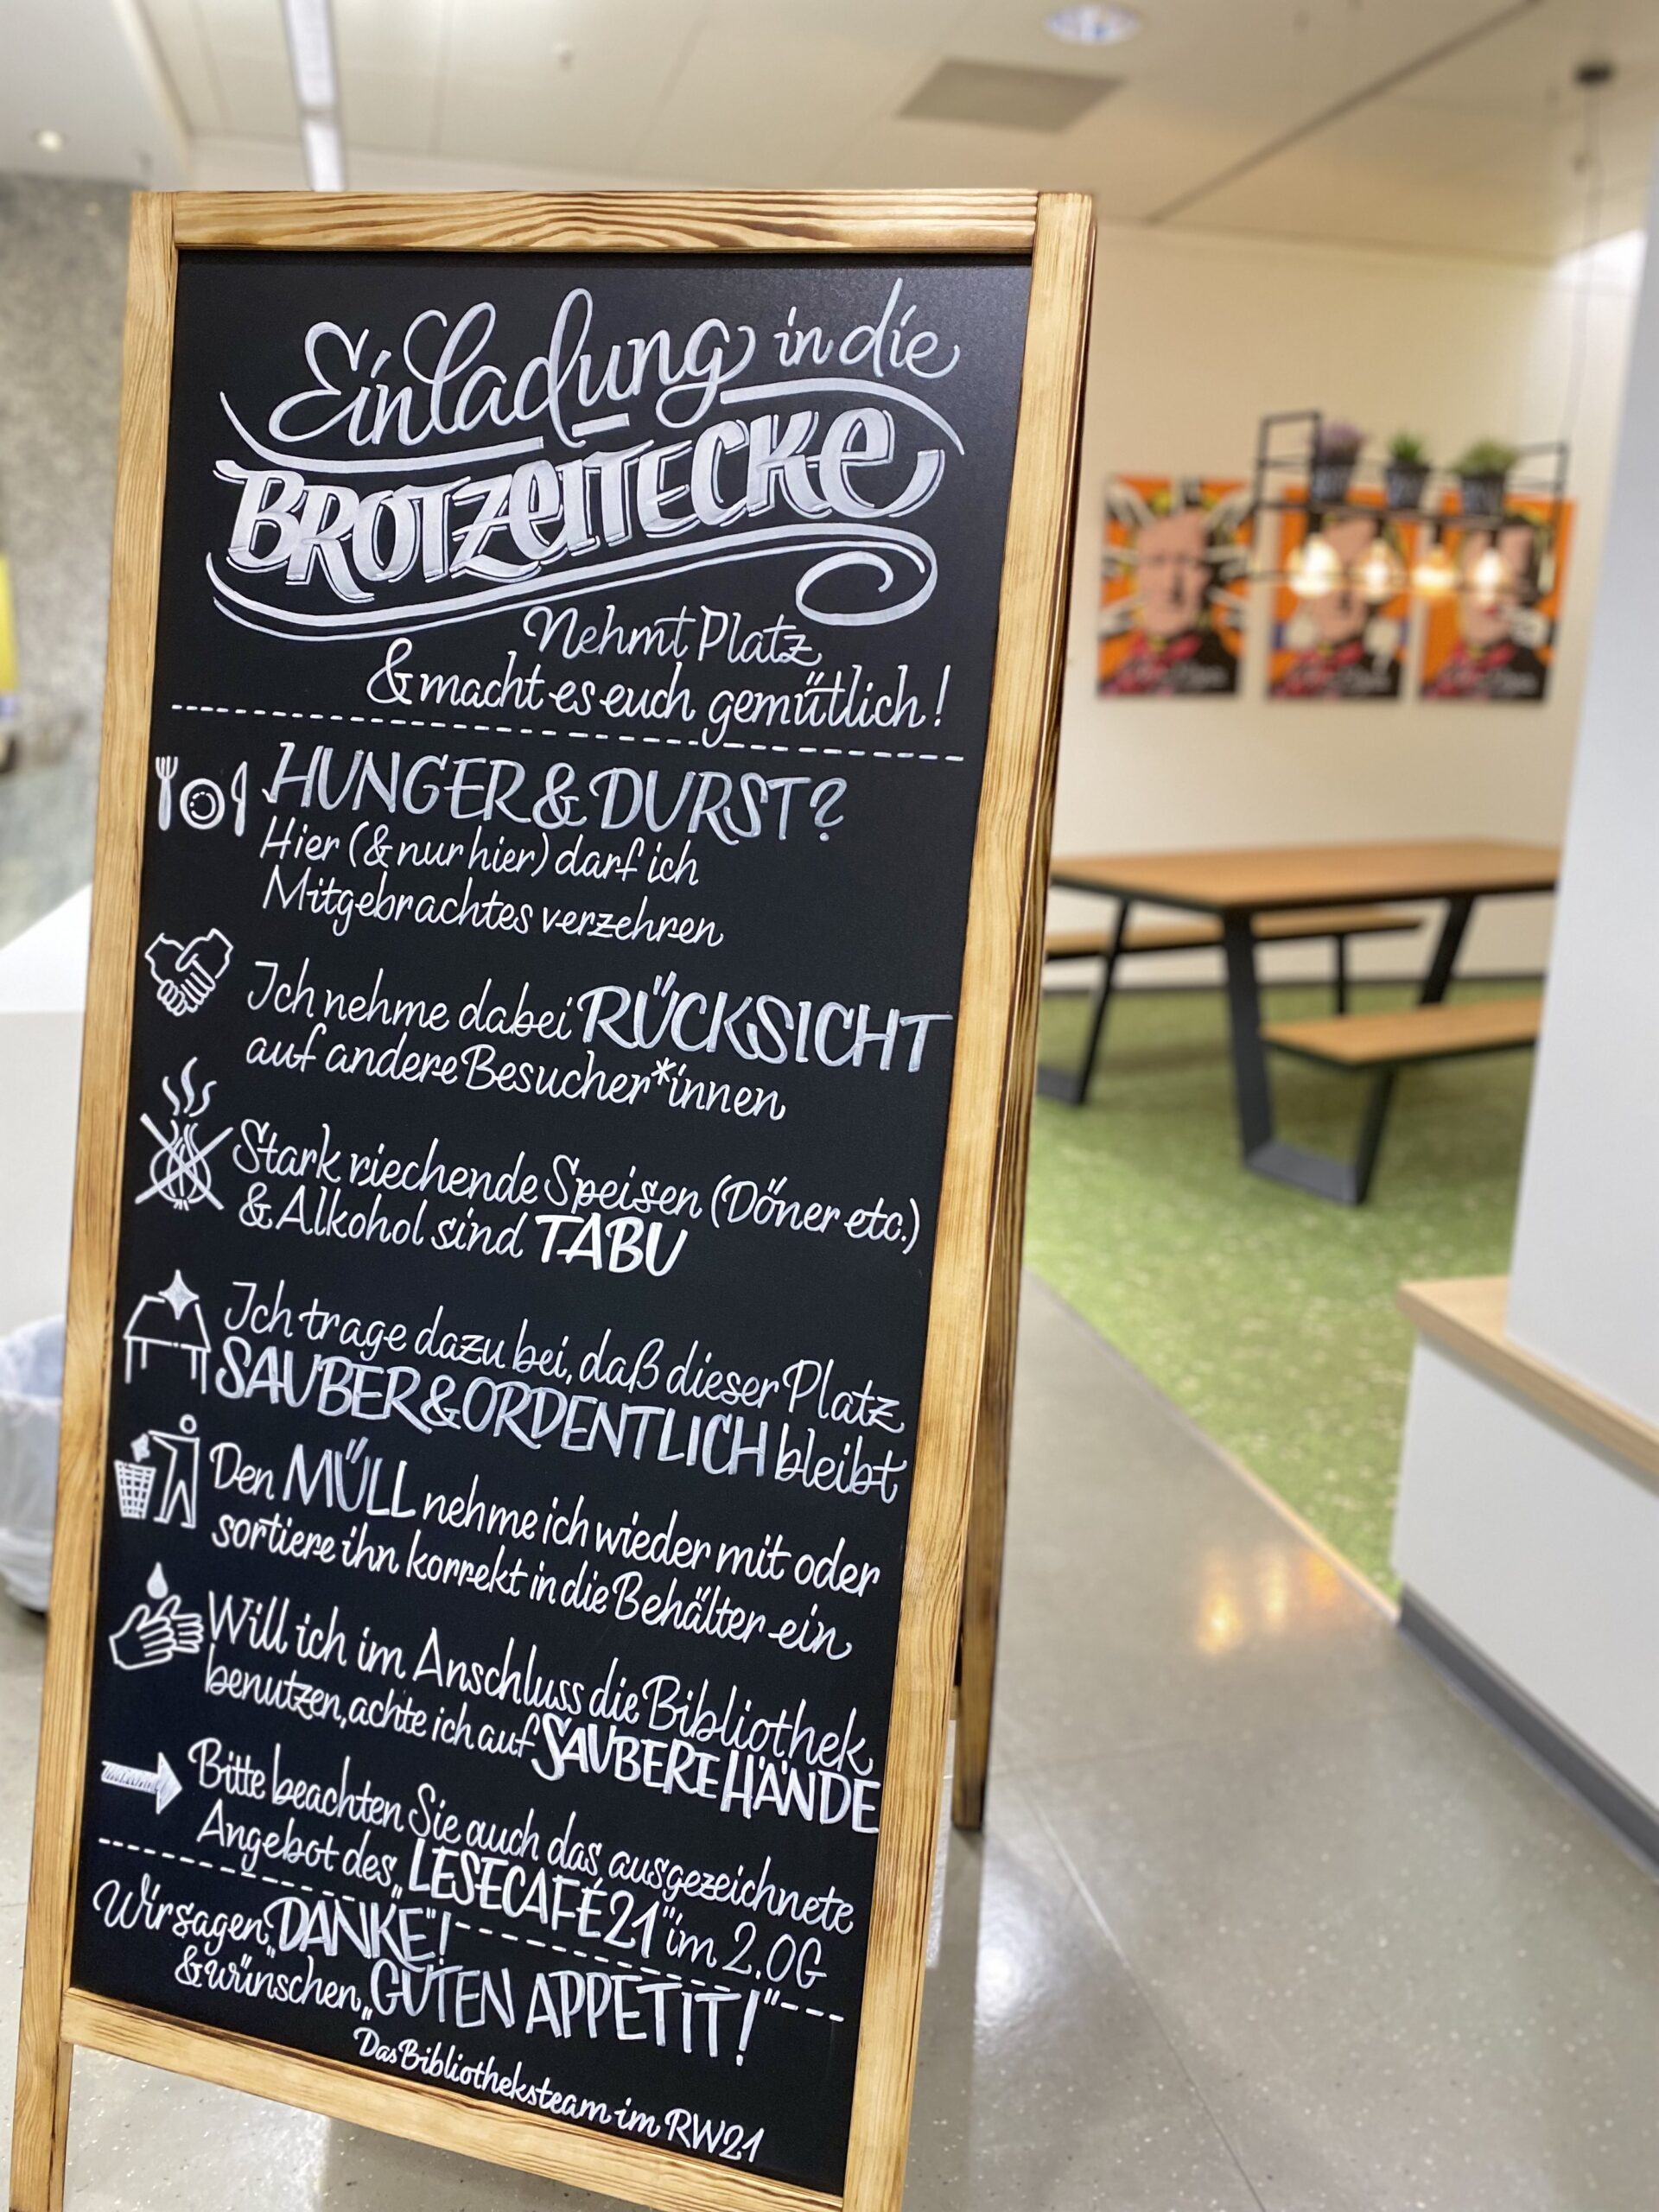 Einladung in die
BROTZEITECKE
Nehmt Platz
& macht es euch gemütlich!
HUNGER & DURST?
Hier (& nur hier) darf ich
Mitgebrachtes verzehren
Ich nehme dabei RÜCKSICHT
auf andere Besucher*innen
Stark riechende Speisen (Döner etc.)
& Alkohol sind TABU
Ich trage dazu bei, daß dieser Platz
SAUBER & ORDENTLICH bleibt
Den MÜLL nehme ich wieder mit oder
sortiere ihn korrekt in die Behälter ein
Will ich im Anschluss die Bibliothek
benutzen, achte ich auf SAUBERE HÄNDE
Bitte beachten Sie auch das ausgezeichnete
Angebot des „LESECAFÉ 21" im 2. OG
Wir sagen „DANKE"!
& wünschen „GUTEN APPETIT!"
Das Bibliotheksteam im RW21